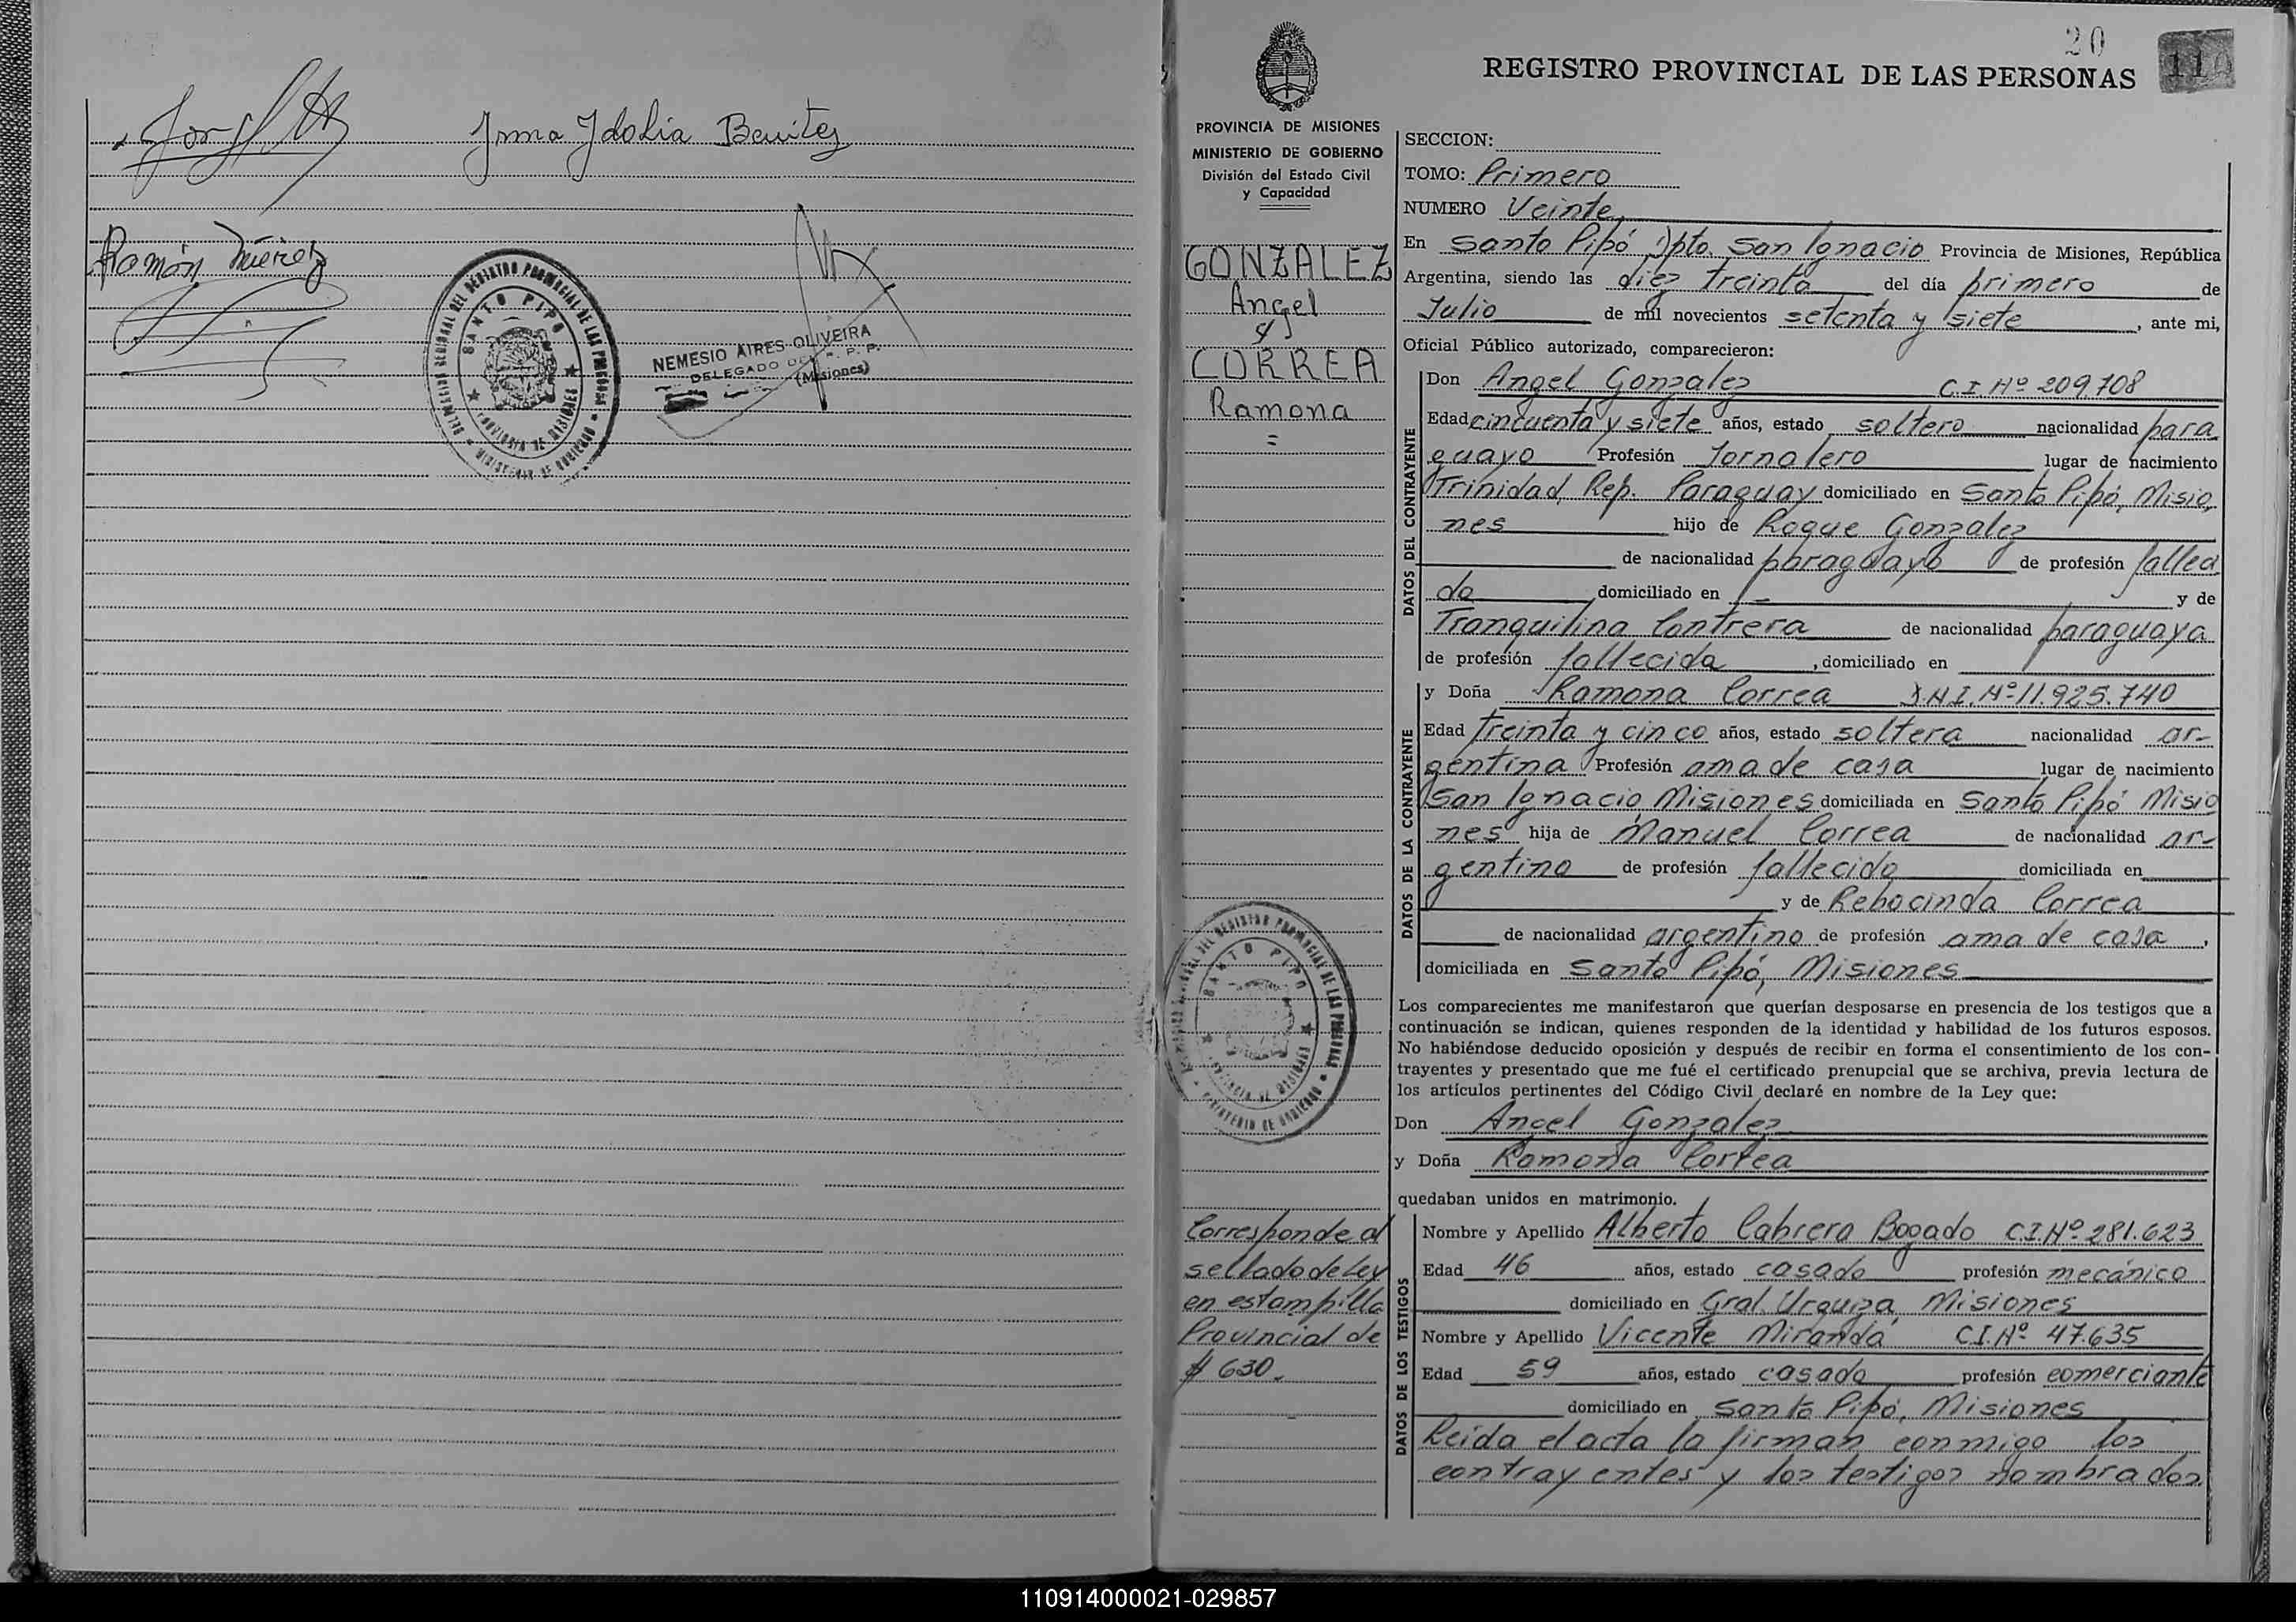 Irma Idolia Benitez
Ramón Núñez
DELEGACION REGIONAL DEL REGISTRO PROVINCIAL DE LAS PERSONAS
SANTO PIPO
PROVINCIA DE MISIONES
MINISTERIO DE GOBIERNO
NEMESIO AIRES OLIVEIRA
DELEGADO DEL R. P. P.
(Misiones)
20
REGISTRO PROVINCIAL DE LAS PERSONAS
11
PROVINCIA DE MISIONES
MINISTERIO DE GOBIERNO
División del Estado Civil
y Capacidad
GONZALEZ
Angel
y
CORREA
Ramona
=
DELEGACION REGIONAL DEL REGISTRO PROVINCIAL DE LAS PERSONAS
SANTO PIPO
PROVINCIA DE MISIONES
MINISTERIO DE GOBIERNO
Corresponde al
sellado de Ley
en estampilla
Provincial de
$ 630.
SECCION:
TOMO: Primero
NUMERO Veinte
En Santo Pipó Dpto. San Ignacio Provincia de Misiones, República
Argentina, siendo las diez treinta del día primero de
Julio de mil novecientos setenta y siete, ante mi,
Oficial Público autorizado, comparecieron:
DATOS DEL CONTRAYENTE
Don Angel Gonzalez C.I. Nº 209.708
Edad cincuenta y siete años, estado soltero nacionalidad para
guayo Profesión Jornalero lugar de nacimiento
Trinidad Rep. Paraguay domiciliado en Santo Pipó, Misio,
nes hijo de Roque Gonzalez
de nacionalidad paraguayo de profesión falleci
do domiciliado en y de
Tranquilina Contrera de nacionalidad paraguaya
de profesión fallecida, domiciliado en
DATOS DE LA CONTRAYENTE
y Doña Ramona Correa D.N.I. Nº 11.925.740
Edad treinta y cinco años, estado soltera nacionalidad ar-
gentina Profesión ama de casa lugar de nacimiento
San Ignacio Misiones domiciliada en Santo Pipó Misio
nes hija de Manuel Correa de nacionalidad ar-
gentino de profesión fallecido domiciliada en
y de Rebocinda Correa
de nacionalidad argentino de profesión ama de casa,
domiciliada en Santo Pipó, Misiones
Los comparecientes me manifestaron que querían desposarse en presencia de los testigos que a
continuación se indican, quienes responden de la identidad y habilidad de los futuros esposos.
No habiéndose deducido oposición y después de recibir en forma el consentimiento de los con-
trayentes y presentado que me fué el certificado prenupcial que se archiva, previa lectura de
los artículos pertinentes del Código Civil declaré en nombre de la Ley que:
Don Angel Gonzalez
y Doña Ramona Correa
quedaban unidos en matrimonio.
DATOS DE LOS TESTIGOS
Nombre y Apellido Alberto Cabrera Bogado C.I. Nº 281.623
Edad 46 años, estado casado profesión mecánico
domiciliado en Gral. Urquiza, Misiones
Nombre y Apellido Vicente Miranda C.I. Nº 47.635
Edad 59 años, estado casado profesión comerciante
domiciliado en Santo Pipó, Misiones
Leida el acta la firman conmigo los
contrayentes y los testigos nombrados.
110914000021-029857